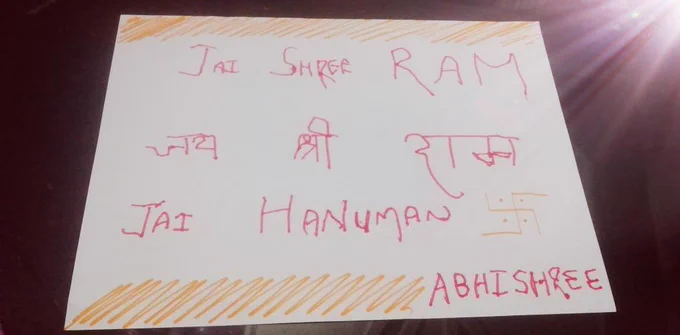 JAI SHREE RAM
जय श्री राम
JAI HANUMAN
ABHISHREE